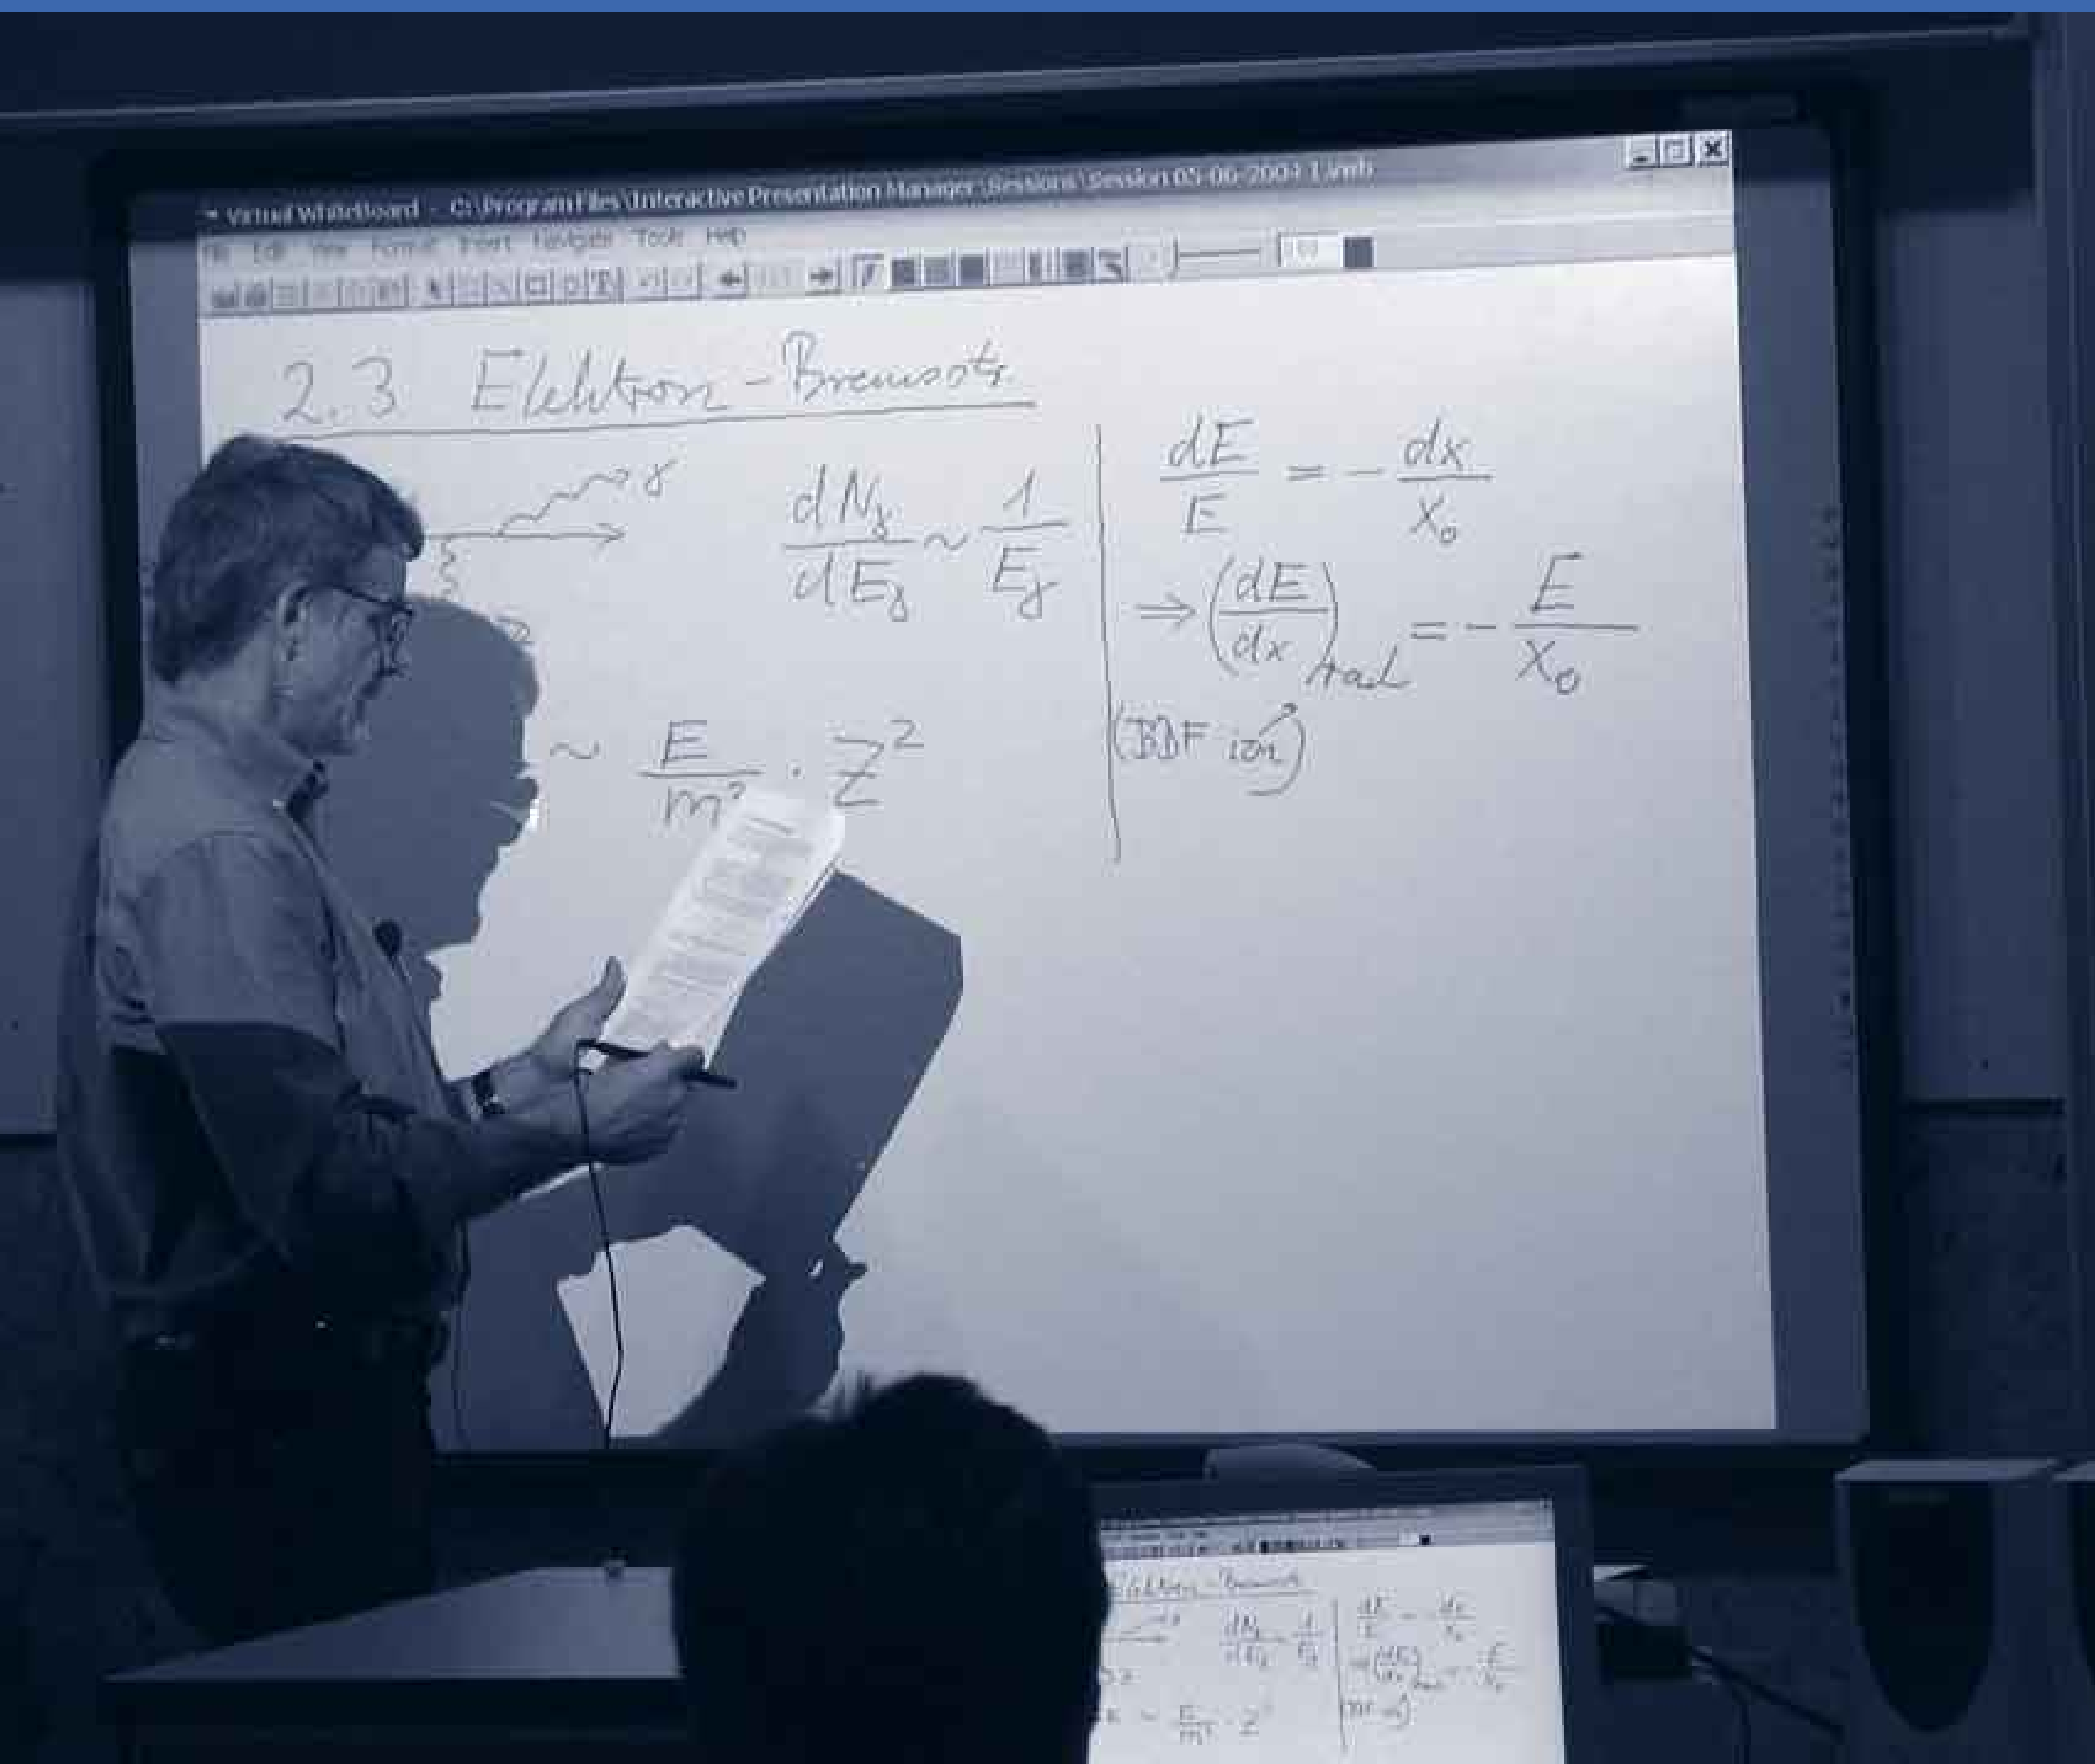 Virtual WhiteBoard - C:\Program Files\Interactive Presentation Manager\Sessions\Session 05-06-2004 1.vwb
File Edit View Format Insert Navigate Tools Help
2.3 Elektron-Bremsstr.
γ
dN_γ/dE_γ ~ 1/E_γ
Z
~ E/m² · Z²
dE/E = - dx/X₀
⇒ (dE/dx)_rad = - E/X₀